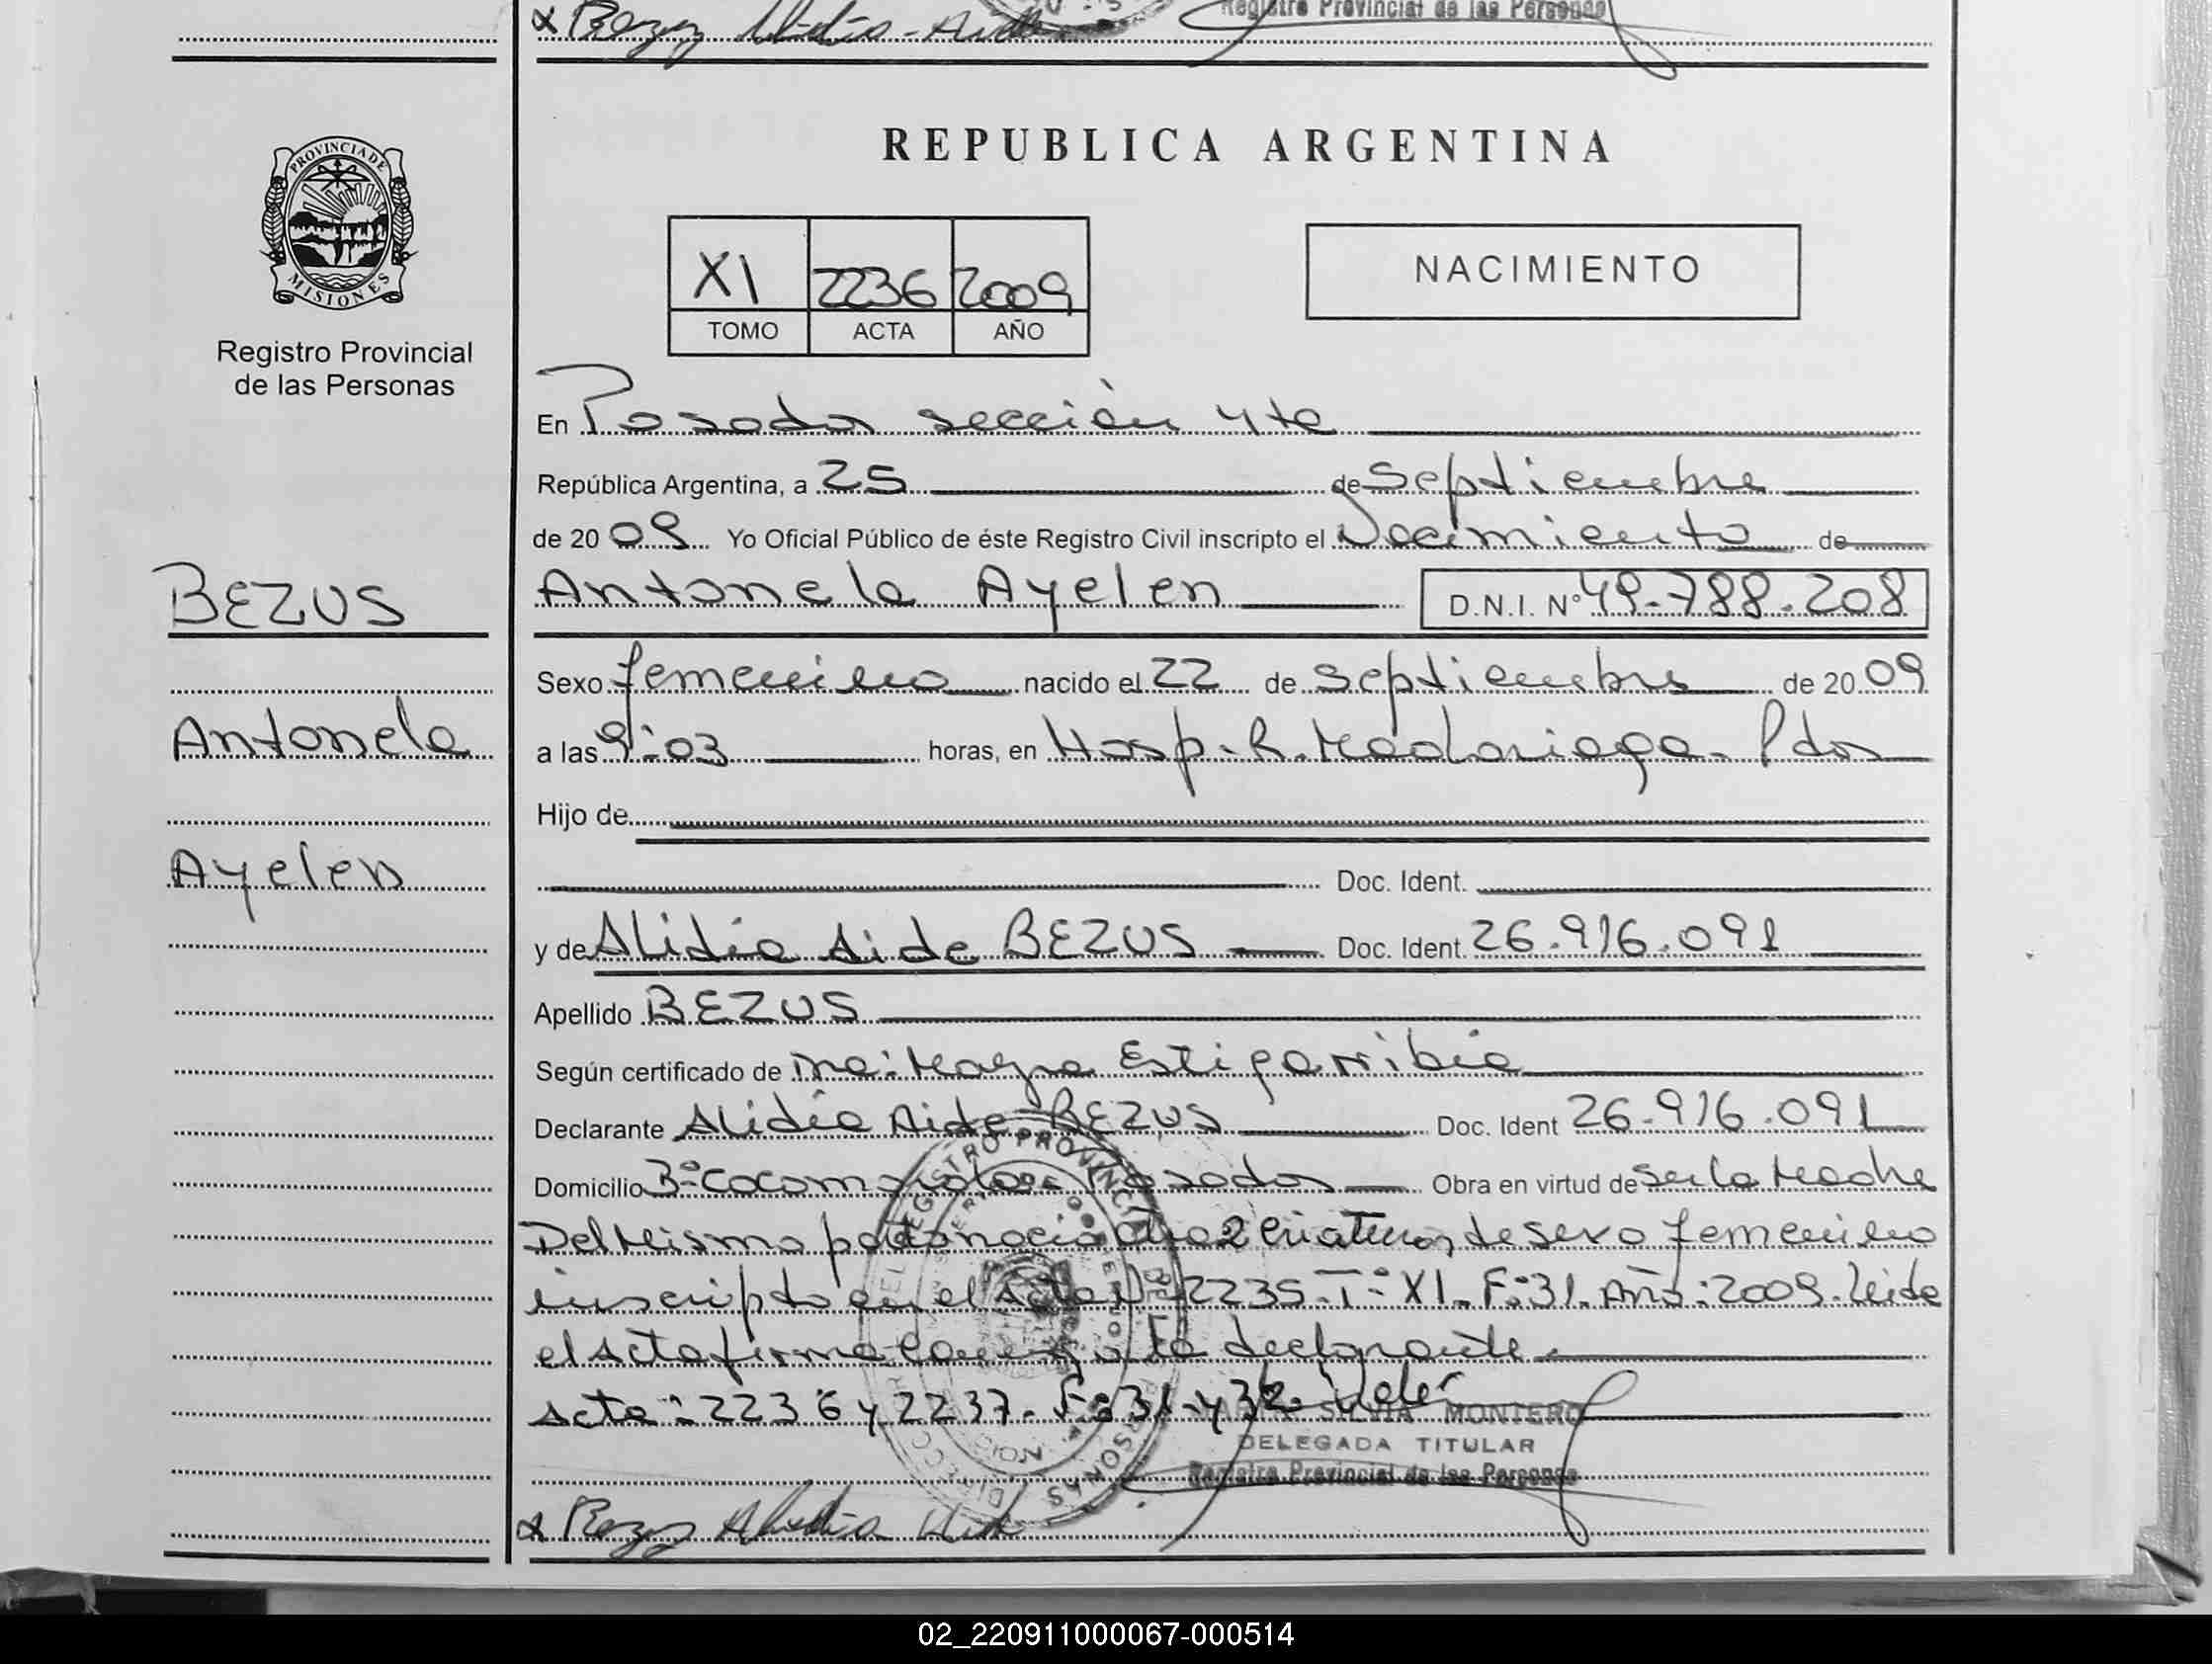 x Bezus Alidia - Aide
Registro Provincial de las Personas
PROVINCIA DE
MISIONES
Registro Provincial
de las Personas
BEZUS
Antonela
Ayelen
REPUBLICA ARGENTINA
XI 2236 2009
TOMO ACTA AÑO
NACIMIENTO
En Posadas sección 4ta
República Argentina, a 25 de Septiembre
de 20 09 Yo Oficial Público de éste Registro Civil inscripto el Nacimiento de
Antonela Ayelen D.N.I. N° 49.788.208
Sexo femenino nacido el 22 de Septiembre de 20 09
a las 9:03 horas, en Hosp. R. Madariaga - Pdas
Hijo de
Doc. Ident.
y de Alidia Aide BEZUS Doc. Ident. 26.916.091
Apellido BEZUS
Según certificado de Estigarribia
Declarante Alidia Aide BEZUS Doc. Ident 26.916.091
Domicilio B° Cocomarola Posadas Obra en virtud de ser la Madre
Del Mismo parto nació 2 criaturas de sexo femenino
inscripto en el Acta N° 2235 - T° XI - F° 31. Año: 2009. Leida
el Acta firma conmigo la declarante.
Acta: 2236 y 2237 - F° 31 y 32. Vale
SILVIA MONTERO
DELEGADA TITULAR
Registro Provincial de las Personas
x Bezus Alidia Aide
02_220911000067-000514